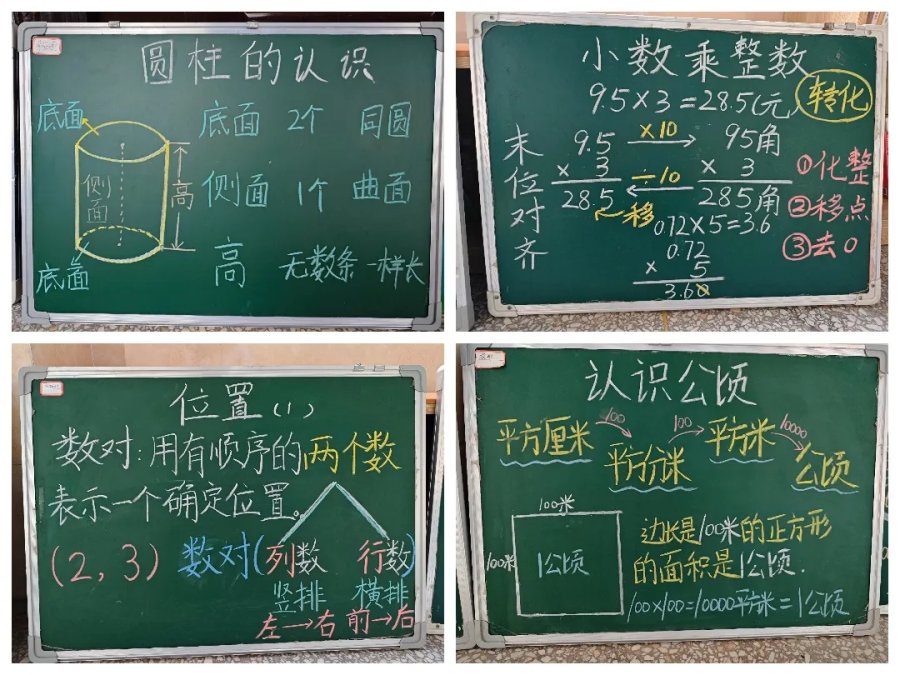 圆柱的认识
底面
底面 2个 同圆
侧面
高
侧面 1个 曲面
底面
高 无数条 一样长
小数乘整数
9.5×3=28.5(元)
转化
末位对齐
9.5 ×10 95角
× 3 ÷10 × 3
28.5 285角
移
0.72×5=3.6
0.72
× 5
3.60
①化整
②移点
③去0
位置(1)
数对:用有顺序的两个数
表示一个确定位置。
(2,3) 数对(列数 行数)
竖排 横排
左→右 前→后
认识公顷
平方厘米 100 平方分米 100 平方米 10000 公顷
100米
100米
1公顷
边长是100米的正方形
的面积是1公顷.
100×100=10000平方米=1公顷